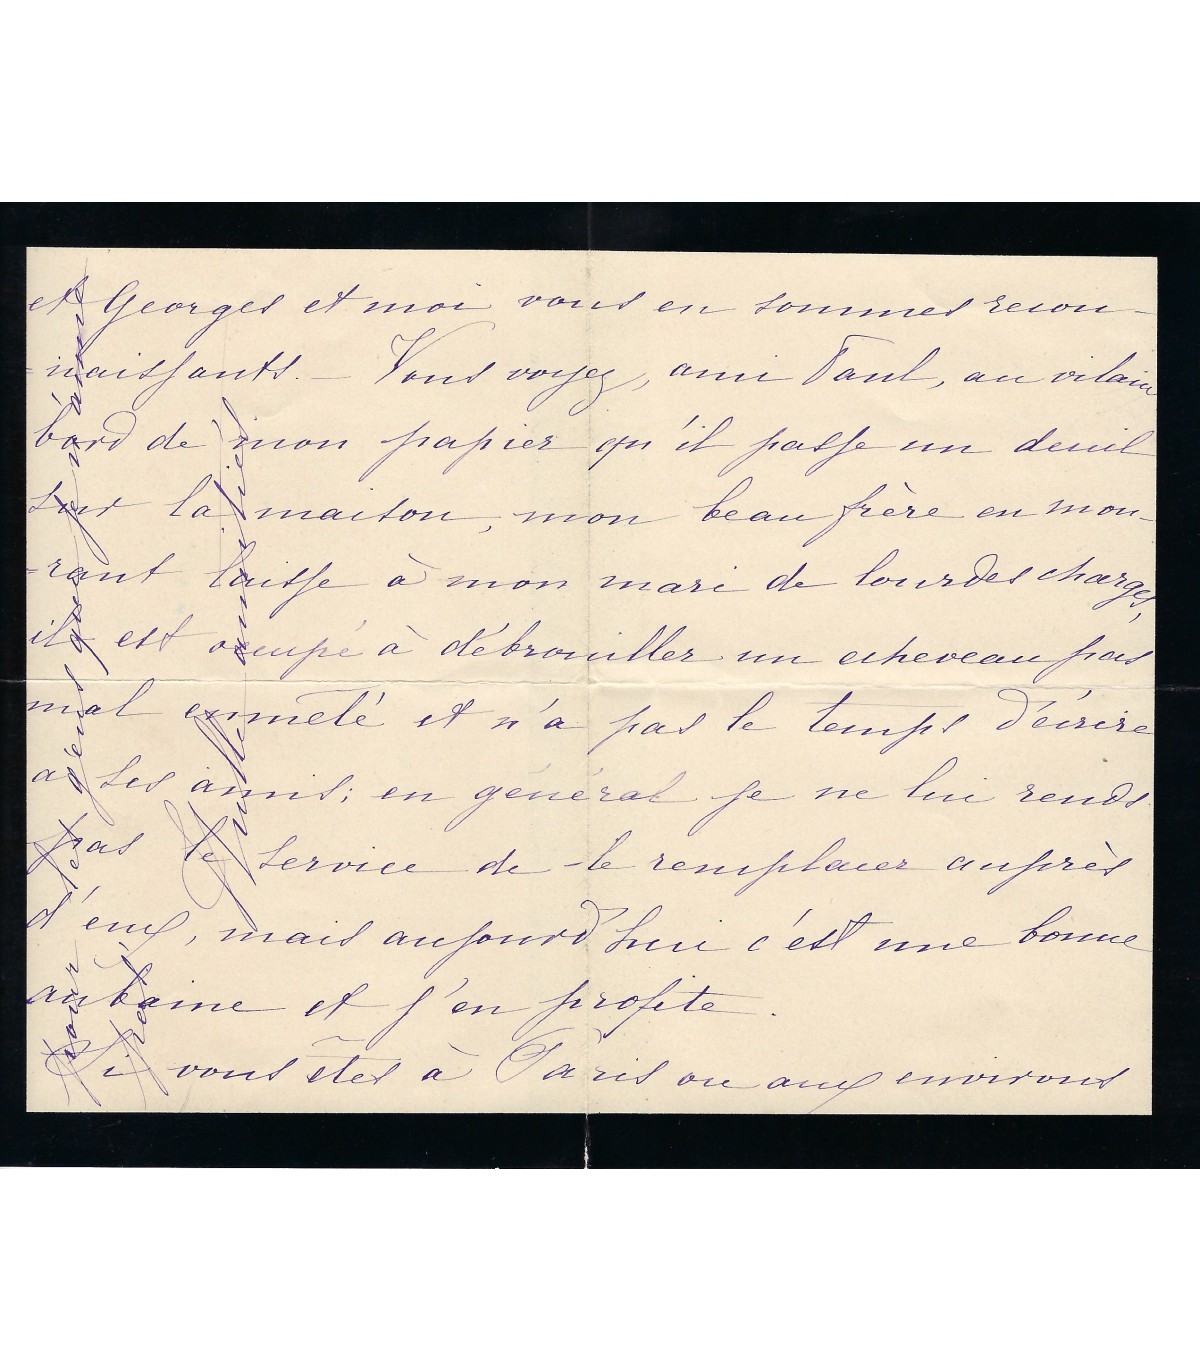 et Georges et moi vous en sommes recon-
-naissants. - Vous voyez, ami Paul, au vilain
bord de mon papier qu'il passe un deuil
sur la maison, mon beau frère en mou-
-rant laisse à mon mari de lourdes charges,
il est occupé à débrouiller un echeveau pas
mal enmêlé et n'a pas le temps d'écrire
a ses amis; en général je ne lui rends
pas le service de le remplacer auprès
d'eux, mais aujourd'hui c'est une bonne
aubaine et j'en profite.
Si vous êtes à Paris ou aux environs
pour les gens que je n'aime
pas.
mille amitiés